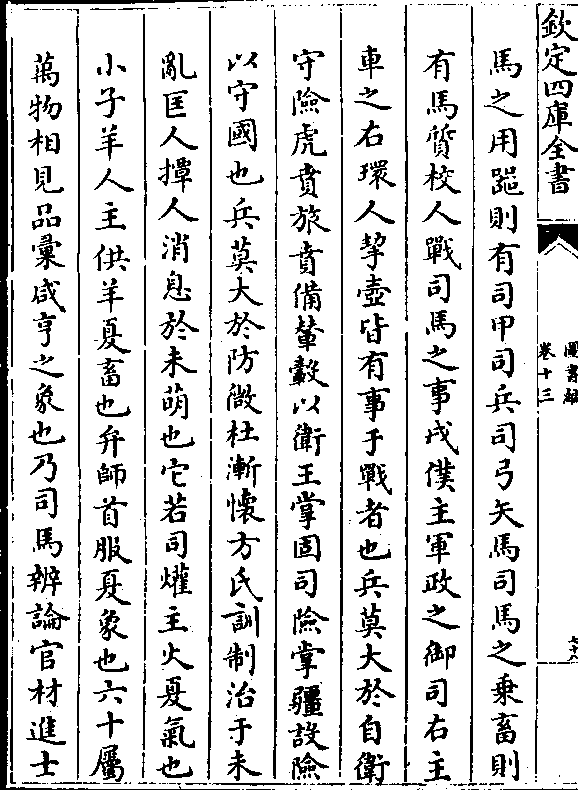 欽定四庫全書
圖書編
卷十三
馬之用蹈則有司甲司兵司弓矢馬司馬之乗畜則
有馬質校人戰司馬之事戎僕主軍政之御司右主
車之右環人挈壺皆有事于戰者也兵莫大於自衛
守險虎賁旅賁備輦轂以衛王掌固司險掌疆設險
以守國也兵莫大於防微杜漸懷方氏訓制治于未
亂匡人撢人消息於未萌也它若司爟主火夏氣也
小子羊人主供羊夏畜也弁師首服夏象也六十屬
萬物相見品彚咸亨之象也乃司馬辨論官材進士